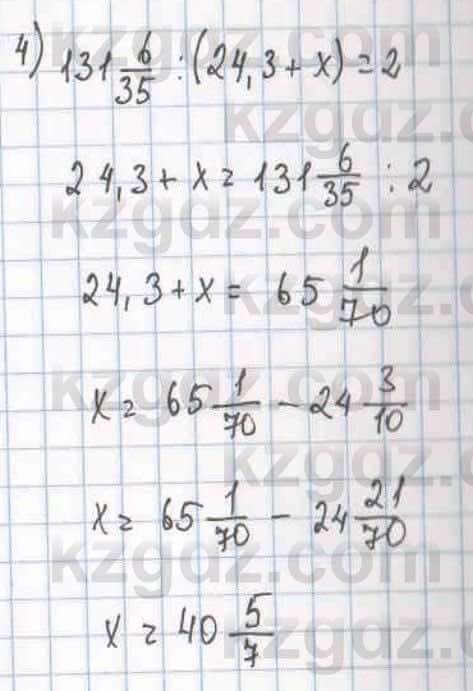 4) 131 6/35 : (24,3 + x) = 2
24,3 + x = 131 6/35 : 2
24,3 + x = 65 1/70
x = 65 1/70 - 24 3/10
x = 65 1/70 - 24 21/70
x = 40 5/7
kzgdz.com
kzgdz.com
kzgdz.com
kzgdz.com
kzgdz.com
kzgdz.com
kzgdz.com